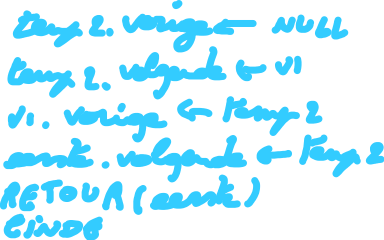 temp2.vorige ← NULL
temp2.volgende ← v1
v1.vorige ← temp2
eerste.volgende ← temp2
RETOUR(eerste)
EINDE